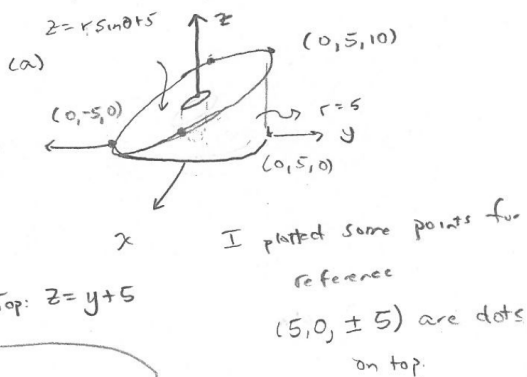 z = r sinθ + 5
z
(0, 5, 10)
(a)
(0, -5, 0)
r = 5
y
(0, 5, 0)
x
I plotted some points for
reference
Top: z = y + 5
(5, 0, ± 5) are dots
on top.